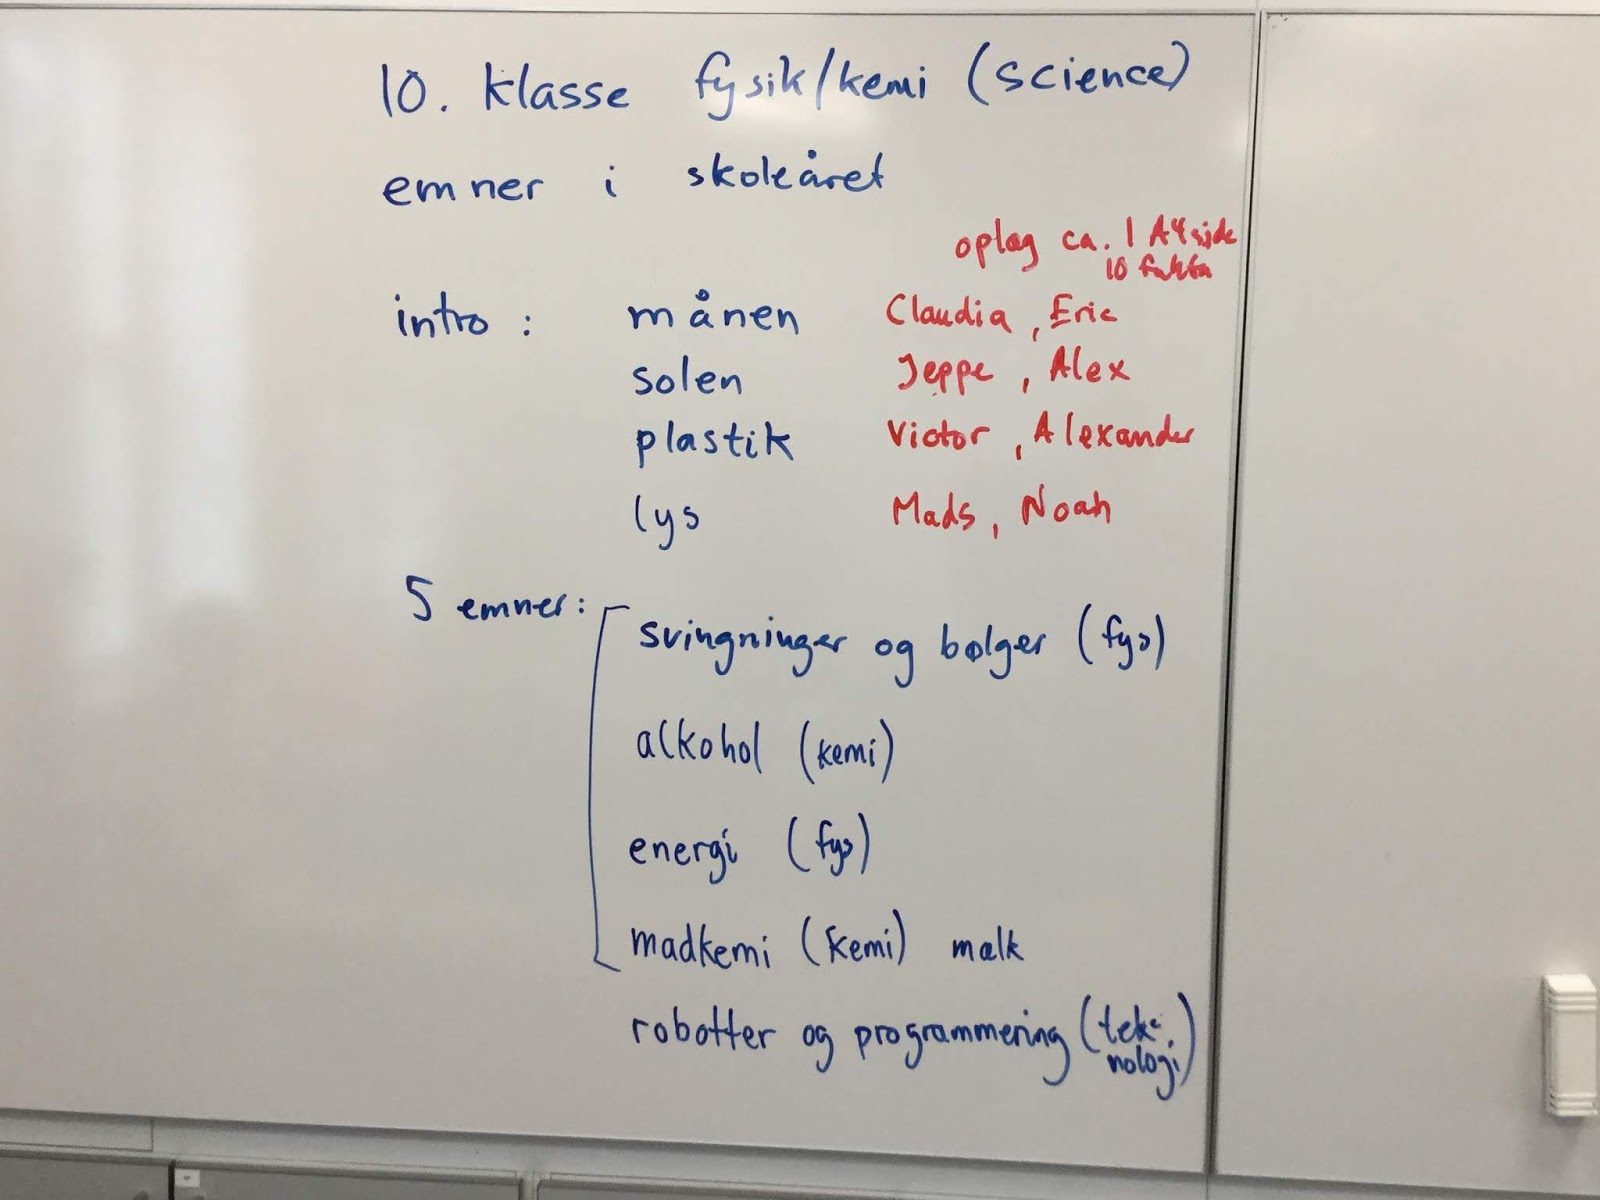 10. klasse fysik/kemi (science)
emner i skoleåret
oplæg ca. 1 A4 side
10 fakta
intro: månen Claudia, Eric
solen Jeppe, Alex
plastik Victor, Alexander
lys Mads, Noah
5 emner: svingninger og bølger (fys)
alkohol (kemi)
energi (fys)
madkemi (kemi) mælk
robotter og programmering (tek-
nologi)